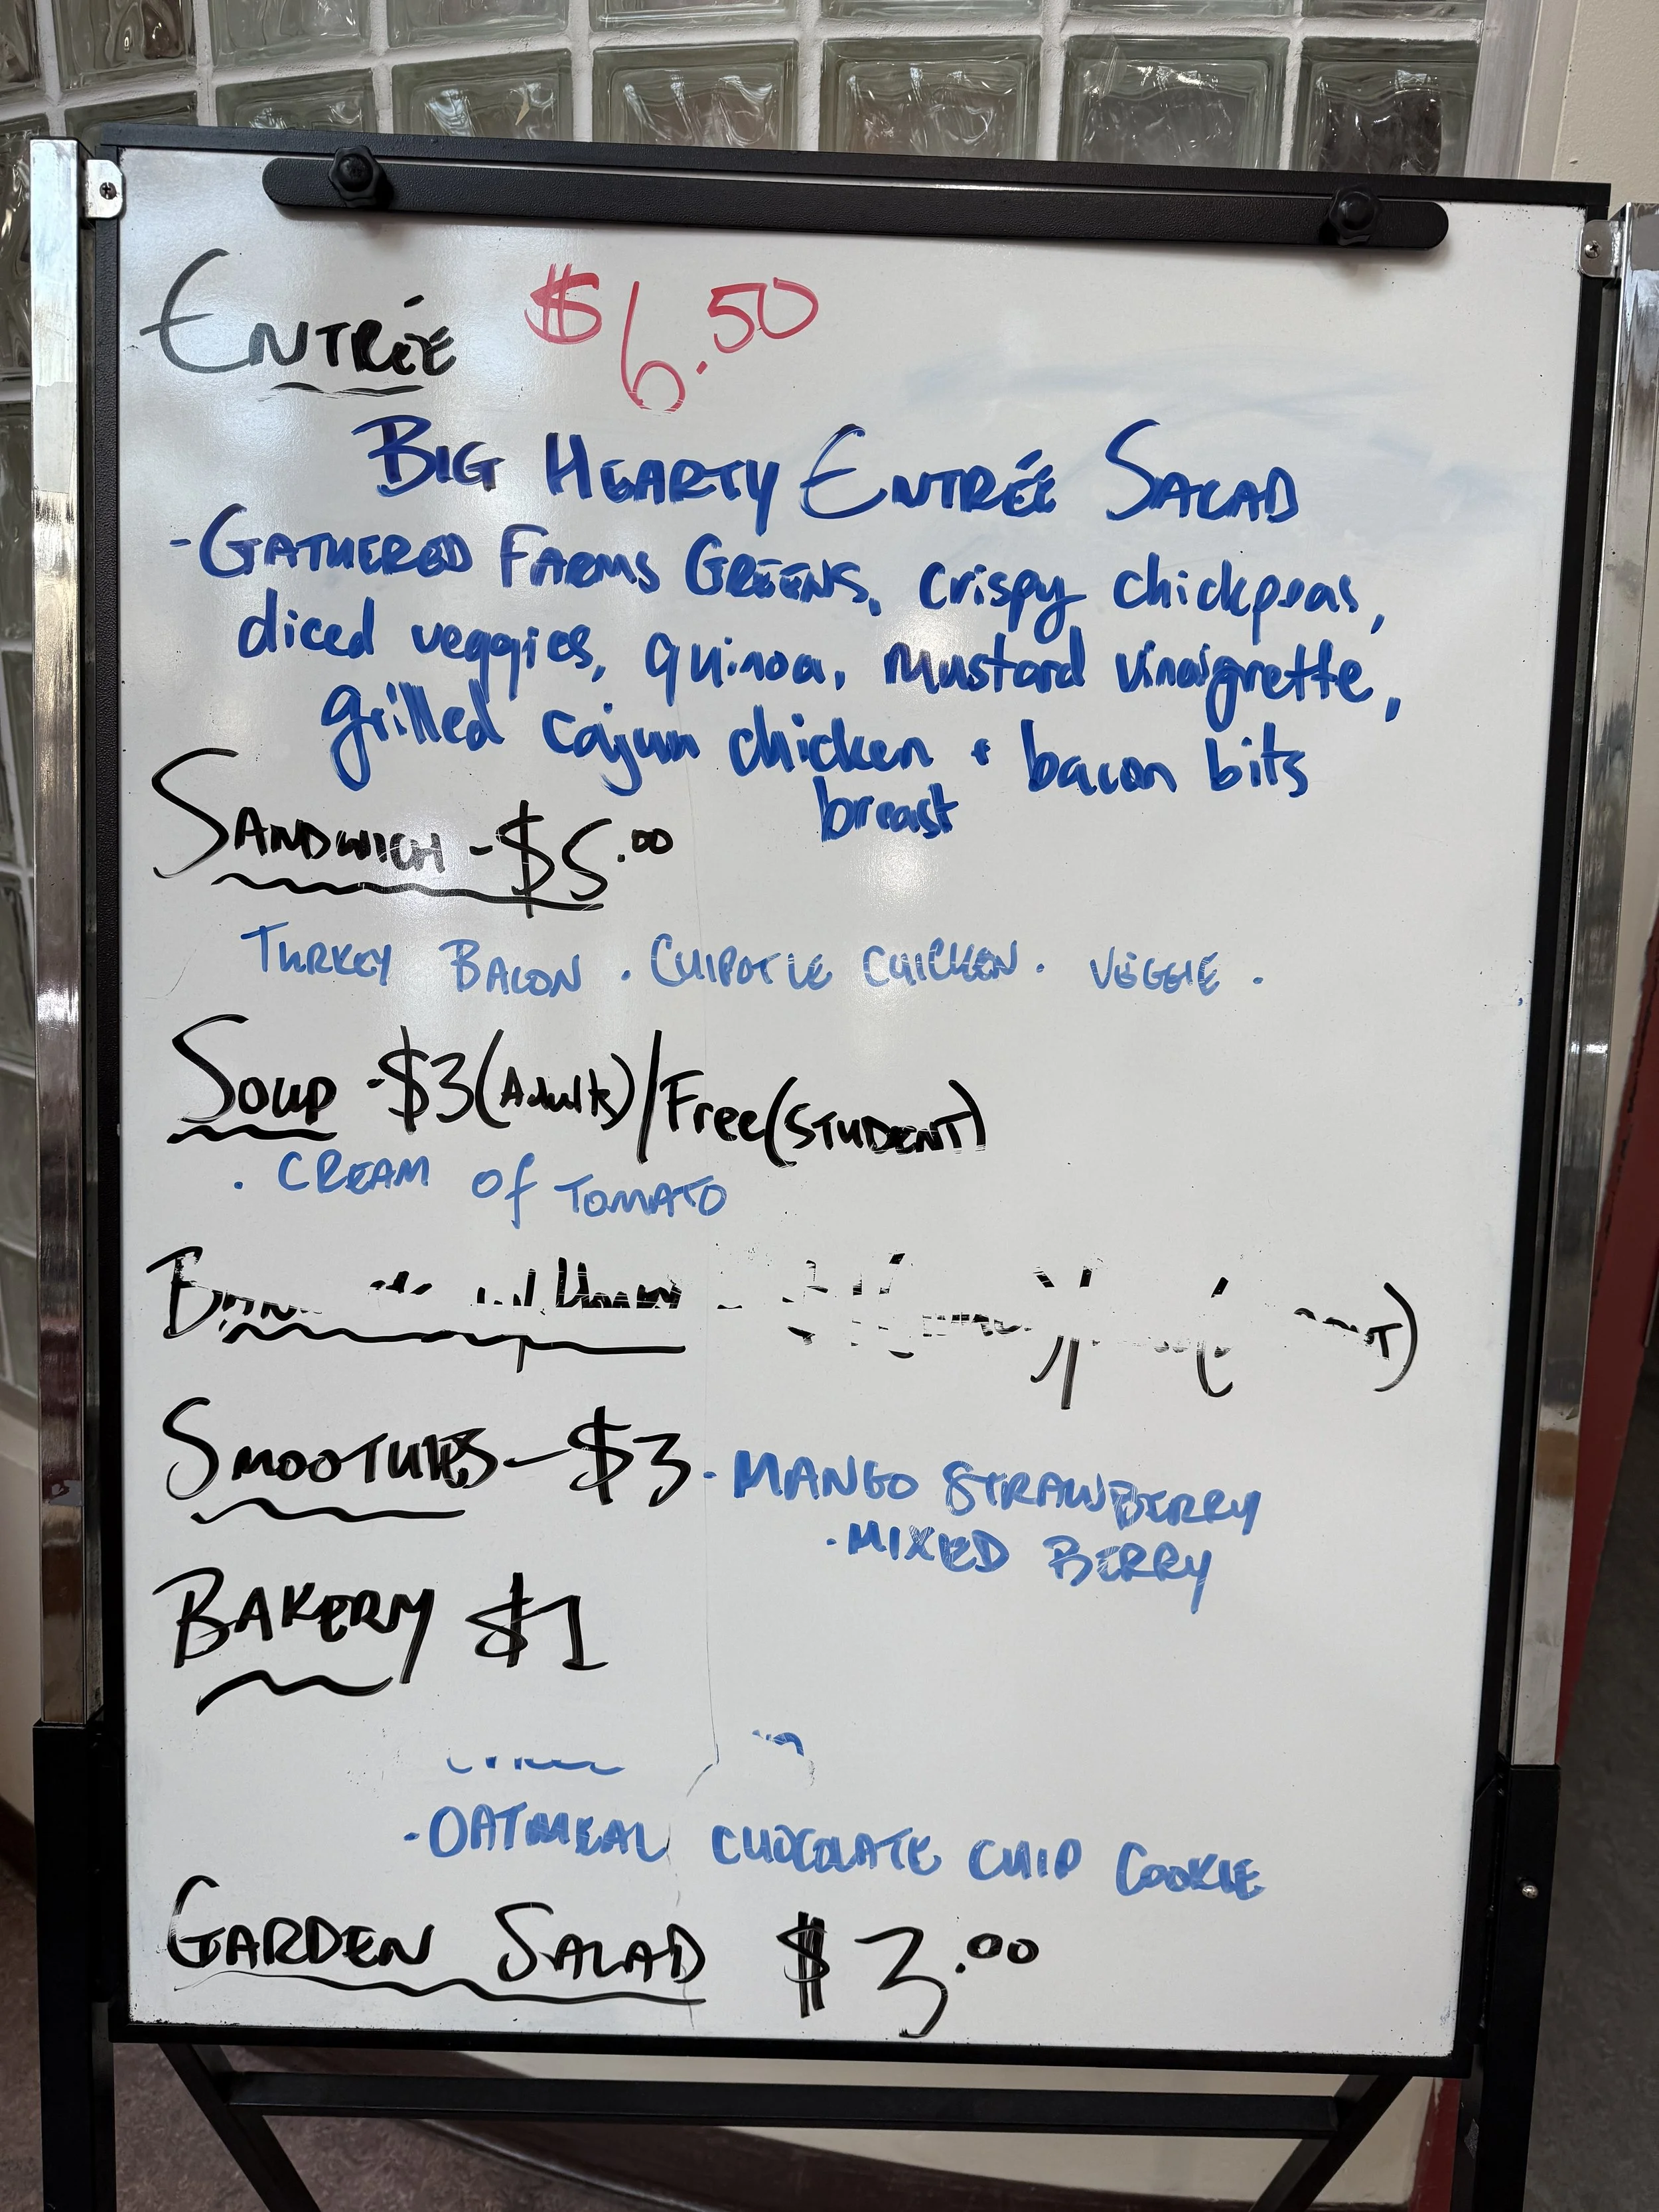 ENTRÉE $6.50
BIG HEARTY ENTRÉE SALAD
- GATHERED FARMS GREENS, crispy chickpeas,
diced veggies, quinoa, mustard vinaigrette,
grilled cajun chicken + bacon bits
breast
SANDWICH - $5.00
TURKEY BACON . CHIPOTLE CHICKEN . VEGGIE .
SOUP - $3 (Adults) / Free (STUDENT)
. CREAM of TOMATO
SMOOTHIES - $3 . MANGO STRAWBERRY
. MIXED BERRY
BAKERY $1
- OATMEAL CHOCOLATE CHIP COOKIE
GARDEN SALAD $3.00